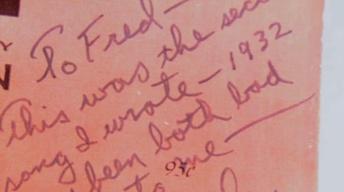 To Fred—
This was the sec
song I wrote — 1932
been both bad
to me —
95¢